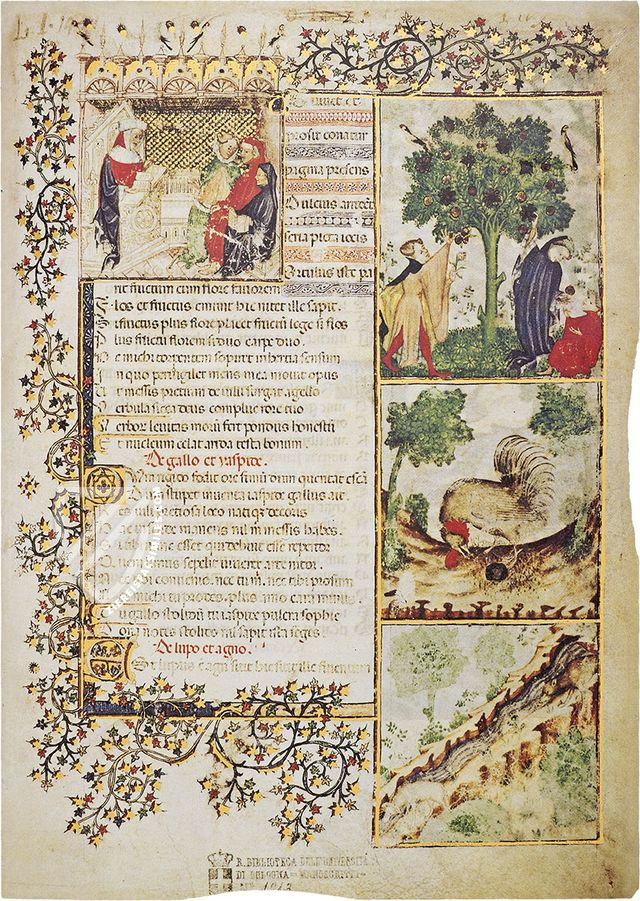 prosit conatur
pagina presens
Dulcius arrident
seria picta iocis
Ortulus iste pa
rit fructum cum flore favorem
flos et fructus emunt hic nitet ille sapit.
Si fructus plus flore placet fructum lege si flos
Plus fructu florem si duo carpe duo.
Ne michi torpentem sopiret inhertia sensum
In quo pervigilet mens mea movit opus
Ut messis pretium de vili surgat agello
Verbula sicca deus complue rore tuo
Verborum levitas morum fert pondus honestum
Et nucleum celat arida testa bonum.
De gallo et iaspide.
Dum stupet inventa iaspide gallus ait
res vili pretiosa loco natique decoris
hac in sorde manens nil michi messis habes.
Si tibi nunc esset qui debuit esse repertor
Quem limus sepelit viveret arte nitor.
Nec tibi convenio, nec tu michi, nec tibi prosum
Nec michi tu prodes, plus amo cara minus.
Tu gallo stolidum tu iaspide pulcra sophie
Dona notes stolido nil sapit ista seges
De lupo et agno.
Est lupus est agnus sitit hic sitit ille fluentum
R. BIBLIOTECA DELL'UNIVERSITÀ
DI BOLOGNA - MANOSCRITTI -
No 1213